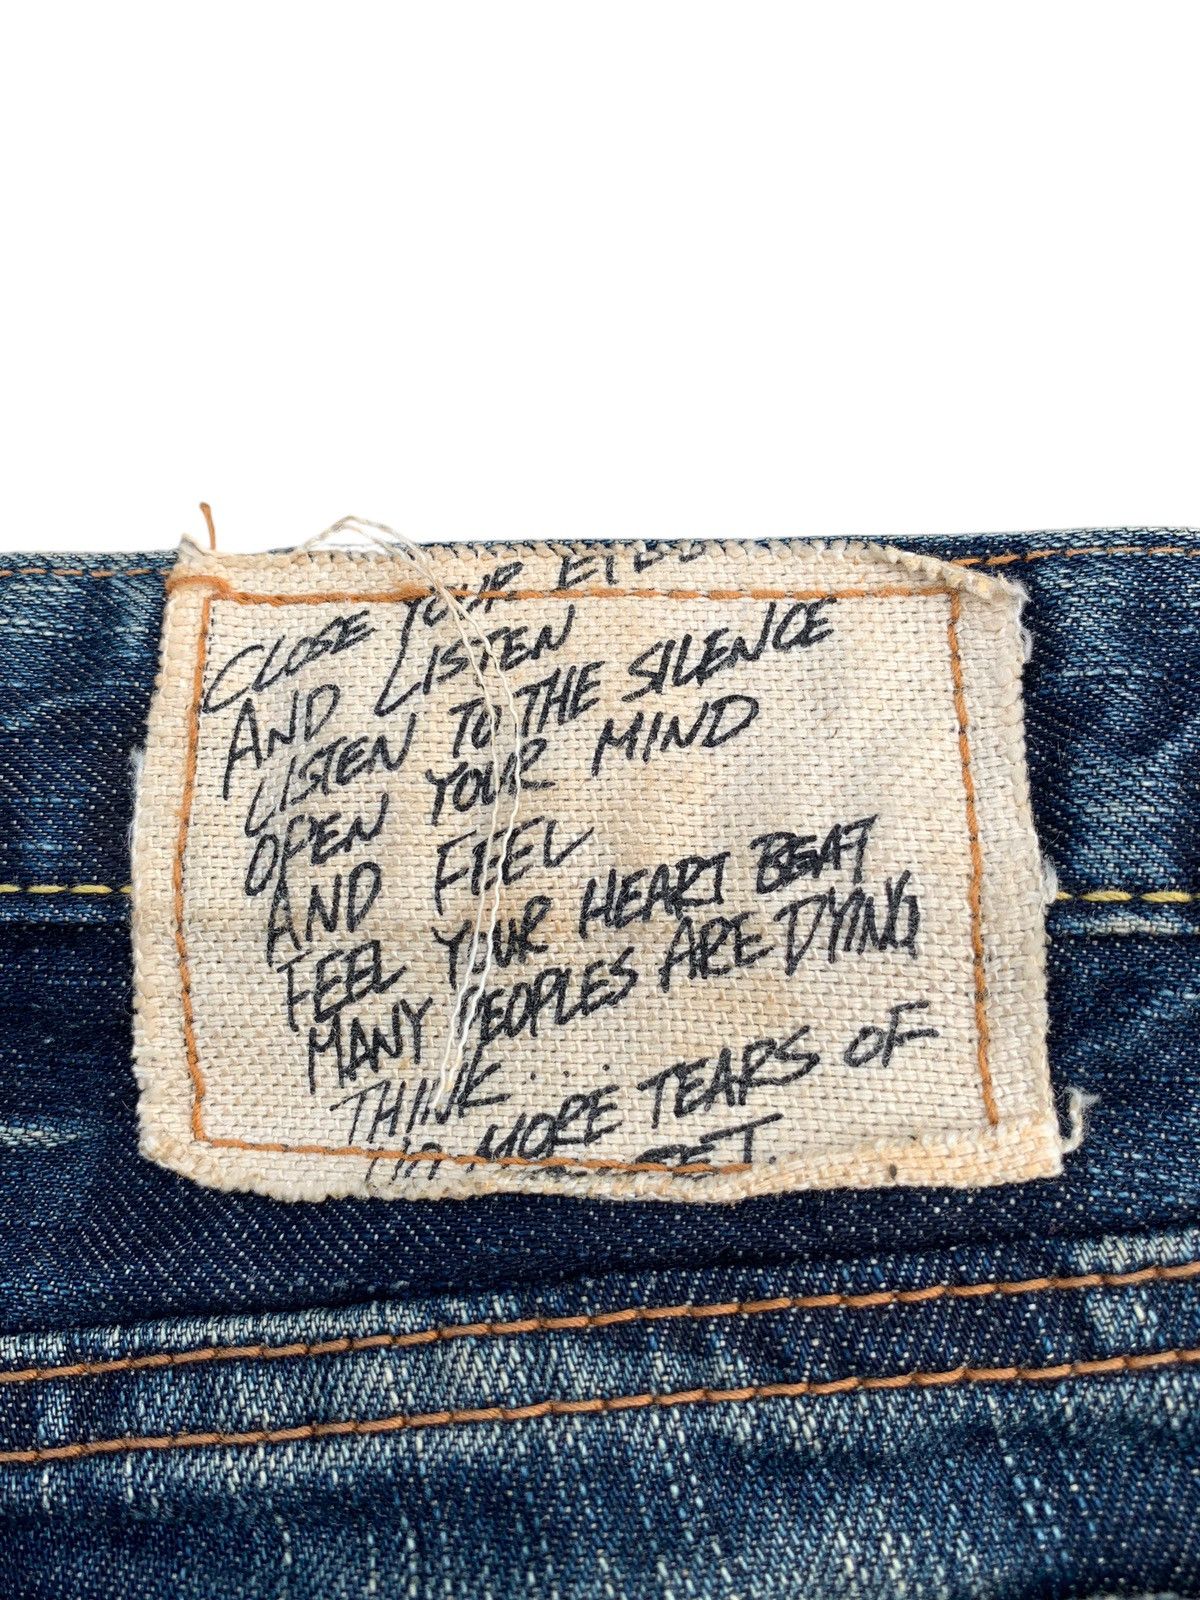 CLOSE YOUR
AND LISTEN
LISTEN TO THE SILENCE
OPEN YOUR MIND
AND FEEL
FEEL YOUR HEART BEAT
MANY PEOPLES ARE DYING
THINK.....
MORE TEARS OF